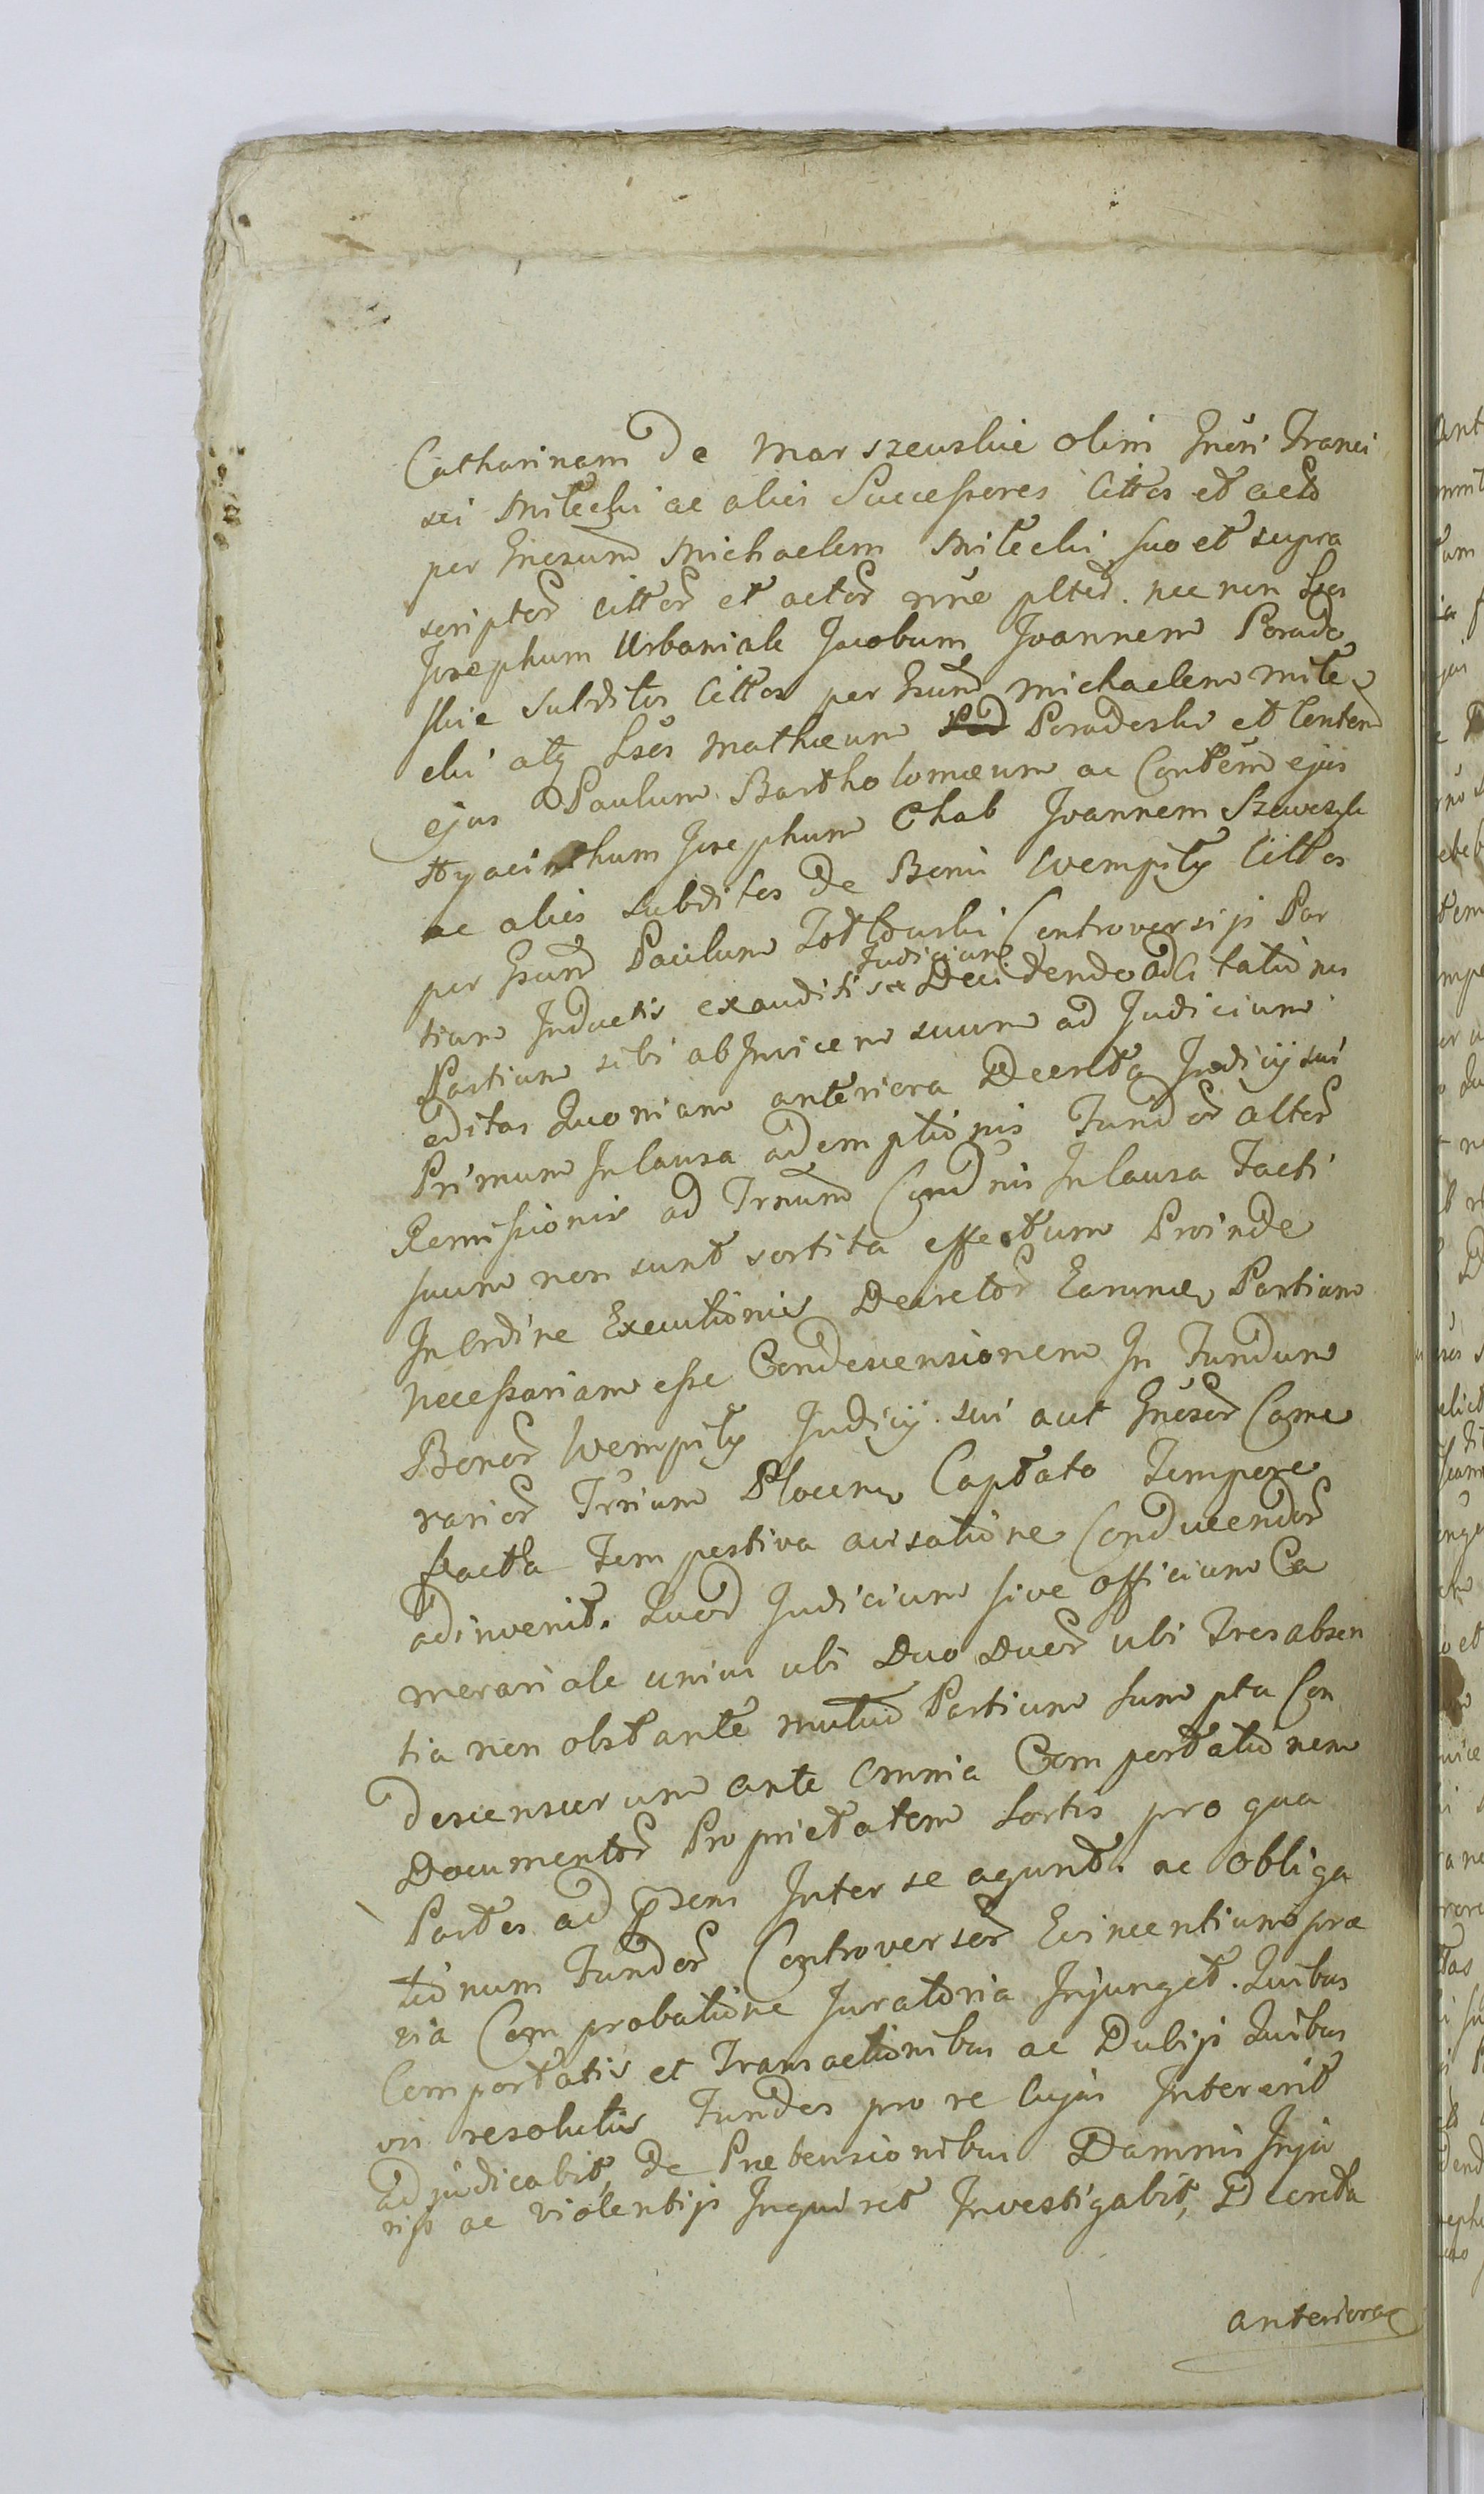 Catharinam De Marszewskie olim Gnesi Franci
sci Miteckii ac alios Successores Cittos et actos
per Gnosum Michaelem Mitecki suo et supra
scriptor cittor et actor nne plted. nec non Lsos
Josephum Urbaniak Jacobum Joannem Porado
skie subditos Cittos per Gsum Michaelem Mite
cki atq Lsos Mathaeum Poradoski et Conten
ejus Paulum Bartholomaeum ac Contem ejus
Hyacinthum Josephum Chab Joannem Szewczyk
ac alios subditos de Bonis Wempiły Cittos
per Gsum Paulum Controversijs Par
tium Inductis exauditisq Judicium Decidendo ad Citationes
Partium sibi ab Invicem suum ad Judicium
editas Quoniam anteriora Decreta Judicij sui
Primum In Causa ademptionis Fundor alter
Remissionis ad Trnum Cond nis In Causa Facti
suum non sunt sortita effectum Proinde
In Ordine Executionis Decretor Earum Partium
necessariam esse Condescensionem In Fundum
Bonor Wempiły Judicij sui aut Gnesor Came
rarior Trrium Plocen Captato Tempore
facta Tempestiva avisatione Conducendor
adinvenit. Quod Judicium sive officium Ca
merariale unius ubi Duo Duor ubi Tres absen
tia non obstante mutuo Partium sumpta Con
descensurum ante omnia Comportationem
Documentor Proprietatem Sortis pro qua
Partes ad psens Inter se agunt. ac obliga
tionum Fundor Controversor Evincentium prae
via Comprobatione Juratoria Injunget. Quibus
Comportatis et Transactionibus ac Dubijs Quibus
vis resolutis Fundos pro re Cujus Intererit
adjudicabit, de Praetensionibus Damnis Inju
rijs ac violentijs Inquiret Investigabit, Decreta
anteriora